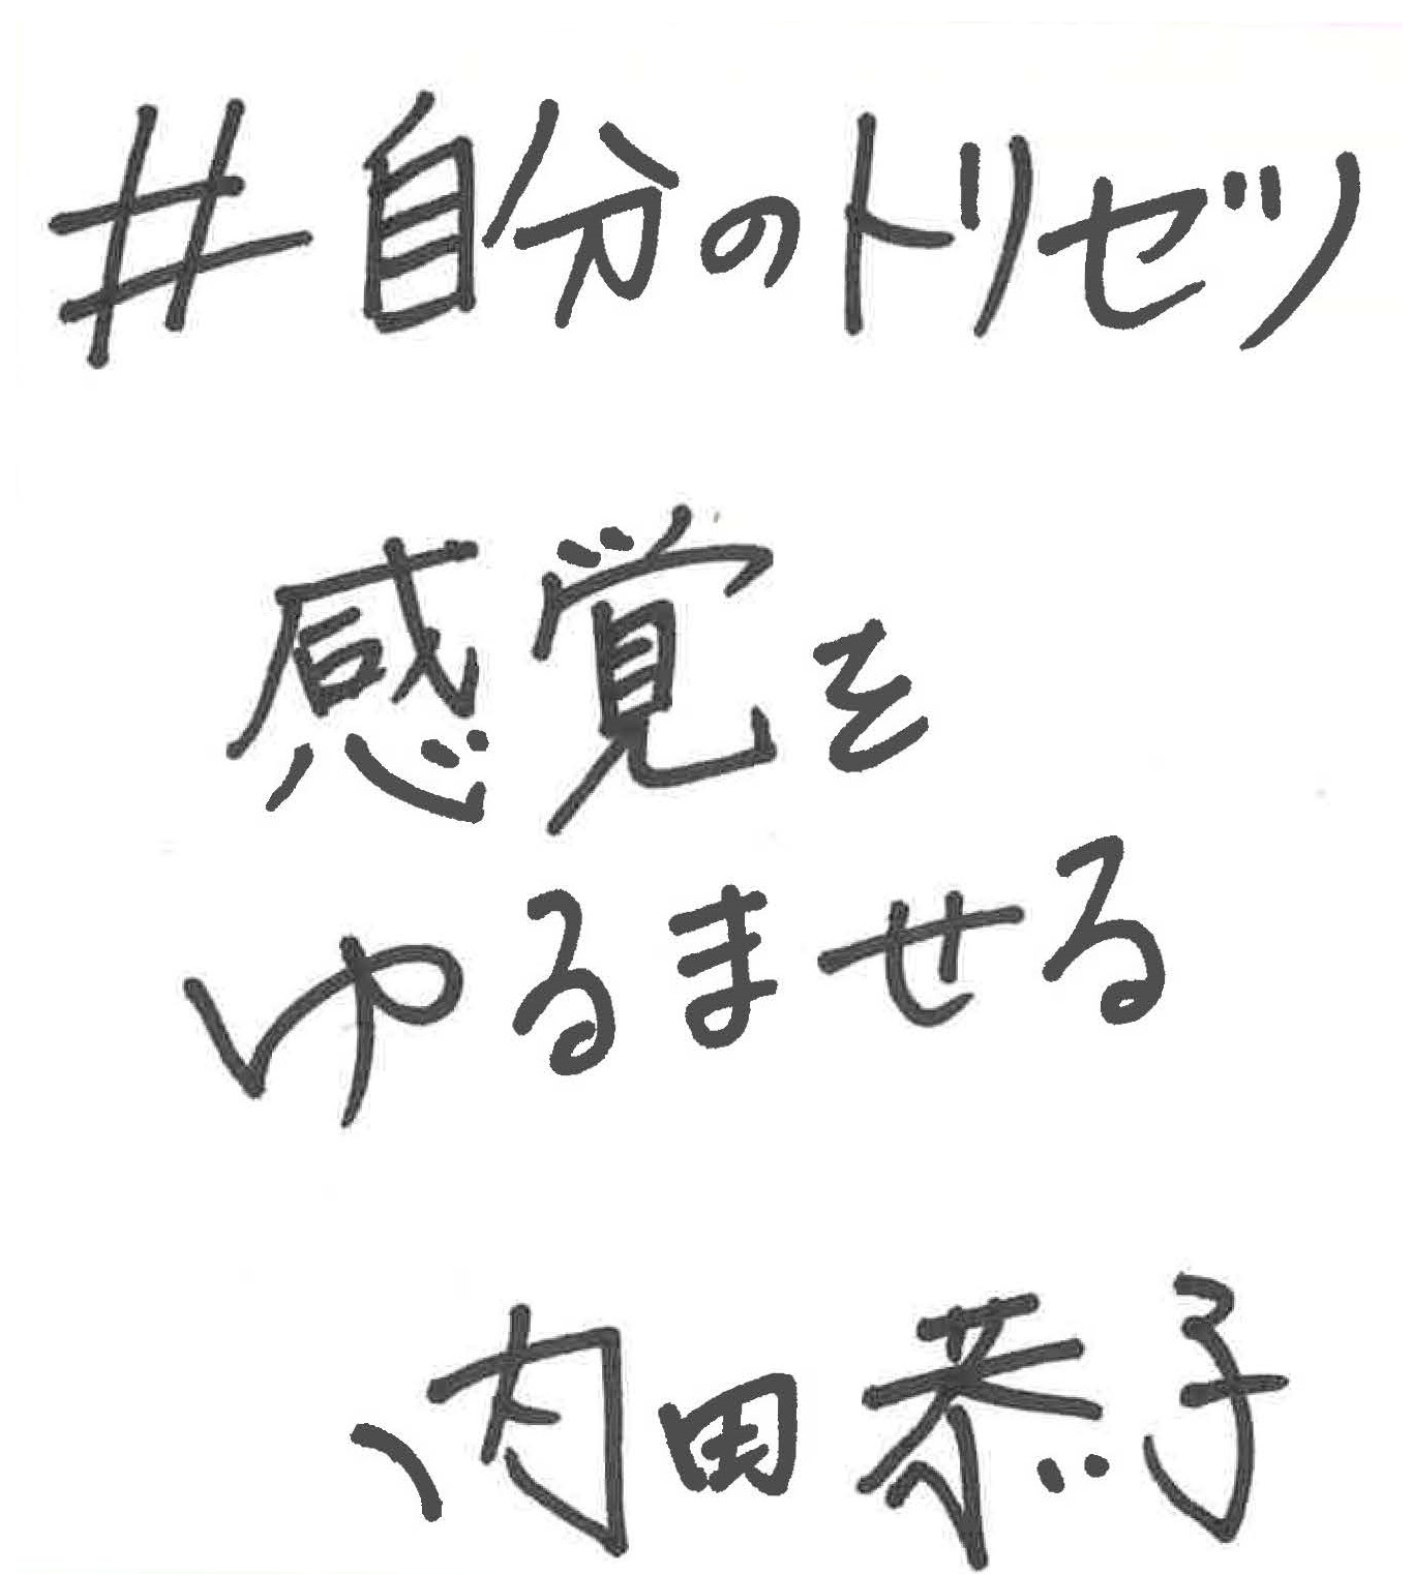 #自分のトリセツ
感覚を
ゆるませる
内田恭子